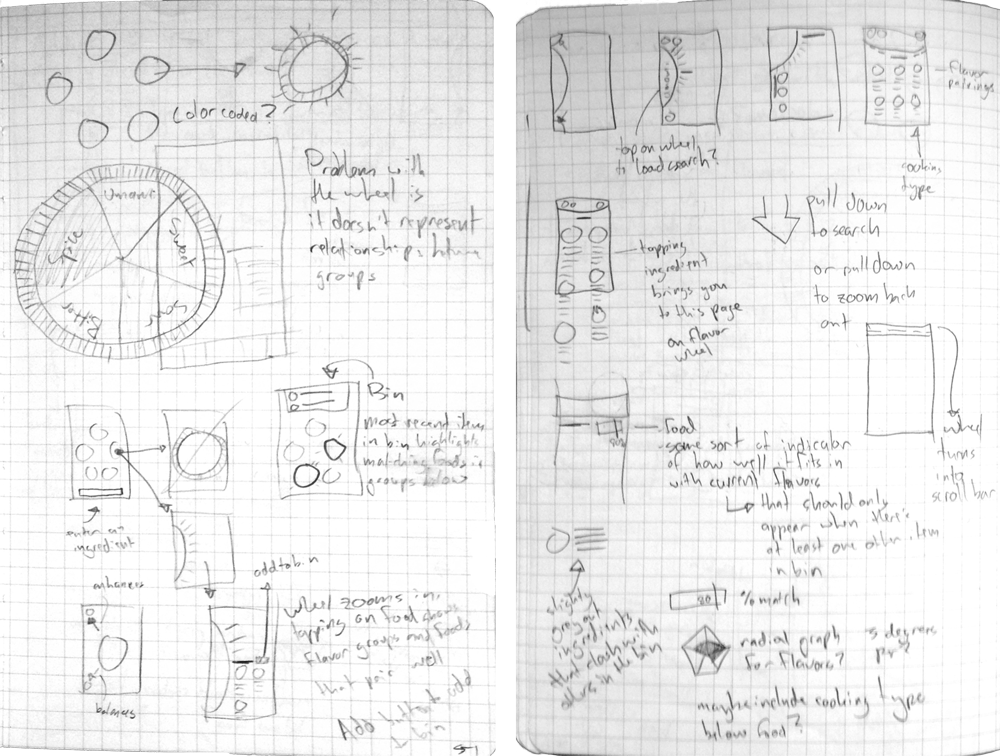 Color coded?
Umami
Sweet
Sour
Bitter
Spice
Problem with
the wheel is
it doesn't represent
relationships between
groups
Bin
most recent item
in bin highlights
matching foods in
groups below
enter an
ingredient
enhances
balances
add to bin
wheel zooms in,
tapping on food shows
flavor groups and foods
that pair well
Add button to add
to bin
flavor
pairings
cooking
type
tap on wheel
to load search?
pull down
to search
or pull down
to zoom back
out
tapping
ingredient
brings you
to this page
on flavor
wheel
wheel
turns
into
scroll bar
food
some sort of indicator
of how well it fits in
with current flavors
that should only
appear when there's
at least one other item
in bin
slightly
grey out
ingredients
that clash with
others in the bin
80
% match
radial graph
for flavors?
maybe include cooking type
below food?